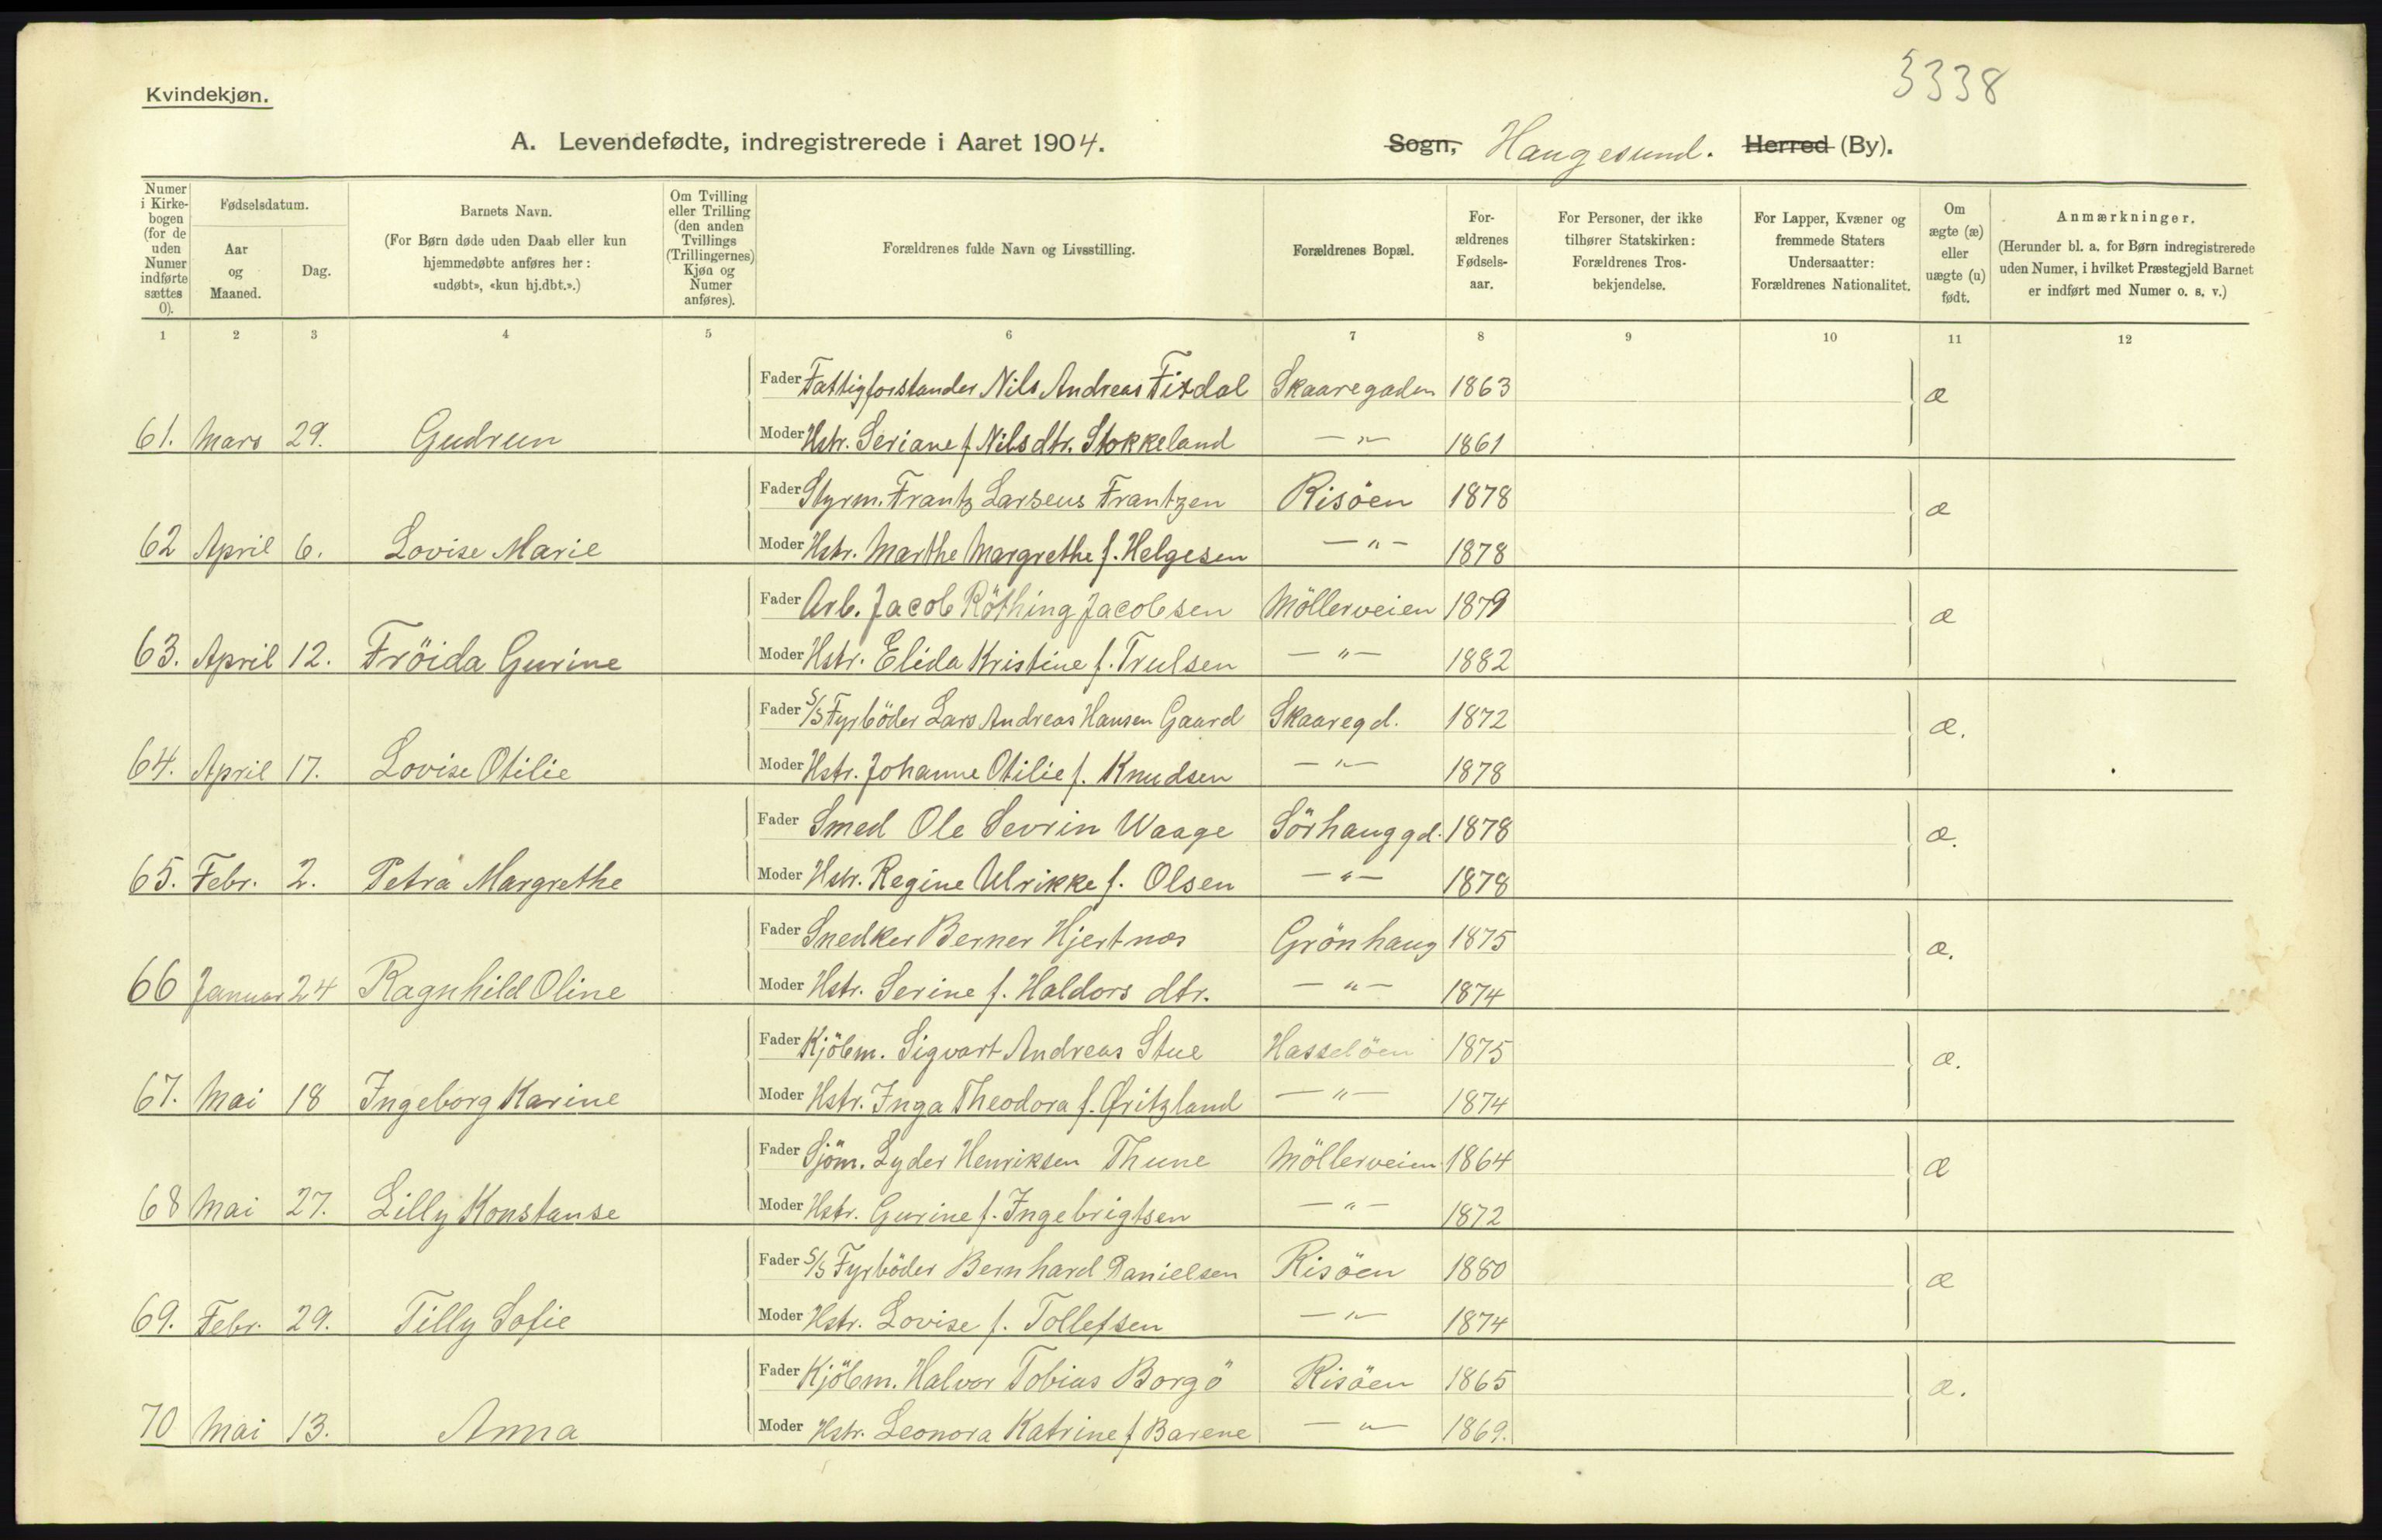 3338
Kvindekjøn.
A. Levendefødte, indregistrerede i Aaret 1904. Sogn, Haugesund. Herred (By).
Numer i Kirke-bogen (for de uden Numer indførte sættes 0).
Fødselsdatum.
Aar og Maaned.
Dag.
Barnets Navn.
(For Børn døde uden Daab eller kun hjemmedøbte anføres her: «udøbt», «kun hj.dbt.».)
Om Tvilling eller Trilling (den anden Tvillings (Trillingernes) Kjøn og Numer anføres).
Forældrenes fulde Navn og Livsstilling.
Forældrenes Bopæl.
For-ældrenes Fødsels-aar.
For Personer, der ikke tilhører Statskirken: Forældrenes Tros-bekjendelse.
For Lapper, Kvæner og fremmede Staters Undersaatter: Forældrenes Nationalitet.
Om ægte (æ) eller uægte (u) født.
Anmærkninger.
(Herunder bl. a. for Børn indregistrerede uden Numer, i hvilket Præstegjeld Barnet er indført med Numer o. s. v.)
1 2 3 4 5 6 7 8 9 10 11 12
Fader Fattigforstander Nils Andreas Fisdal Skaaregaden 1863 æ
61. Mars 29. Gudrun Moder Hstr. Seriane f Nilsdtr. Stokkeland —"— 1861
Fader Styrm. Frantz Larseus Frantzen Risöen 1878 æ
62 April 6. Lovise Marie Moder Hstr. Marthe Margrethe f. Helgesen —"— 1878
Fader Arb. Jacob Röthing Jacobsen Möllerveien 1879 æ
63. April 12. Fröida Gurine Moder Hstr. Elida Kristine f. Trulsen —"— 1882
Fader S/S Fyrböder Lars Andreas Hansen Gaard Skaaregd. 1872 æ.
64. April 17. Lovise Otilie Moder Hstr. Johanne Otilie f. Knudsen —"— 1878
Fader Smed Ole Sevrin Waage Sörhauggd. 1878 æ.
65. Febr. 2. Petra Margrethe Moder Hstr. Regine Ulrikke f. Olsen —"— 1878
Fader Snedker Berner Hjertnæs Grönhaug 1875 æ.
66 Januar 24 Ragnhild Oline Moder Hstr. Serine f. Haldors dtr. —"— 1874
Fader Kjöbm. Sigvart Andreas Stue Hasselöen 1875 æ.
67. Mai 18 Ingeborg Karine Moder Hstr. Inga Theodora f. Øritzland —"— 1874
Fader Sjöm. Lyder Henriksen Thune Möllerveien 1864 æ
68 Mai 27. Lilly Konstanse Moder Hstr. Gurine f. Ingebrigtsen —"— 1872
Fader S/S Fyrböder Bernhard Danielsen Risöen 1880 æ
69. Febr. 29. Tilly Sofie Moder Hstr. Lovise f. Tollefsen —"— 1874
Fader Kjöbm. Halvor Tobias Borgö Risöen 1865 æ.
70 Mai 13. Anna Moder Hstr. Leonora Katrine f Barene —"— 1869.